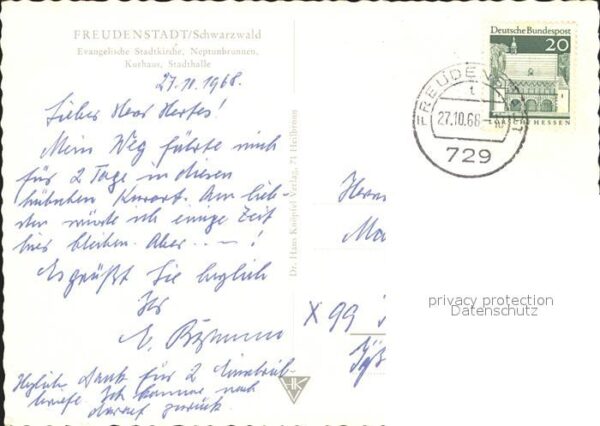 FREUDENSTADT/Schwarzwald
Evangelische Stadtkirche, Neptunbrunnen,
Kurhaus, Stadthalle
27.10.1968.
Lieber Herr Hertes!
Mein Weg führte mich
für 2 Tage in diesen
hübschen Kurort. Am lieb-
sten würde ich einige Zeit
hier bleiben. Aber ... – !
Es grüßt Sie herzlich
Ihr
Herzlichen Dank für 2
briefe. Ich komme noch
darauf zurück.
Dr. Hans Knüpfel Verlag, 71 Heilbronn
HK
Deutsche Bundespost
20
LORSCH HESSEN
FREUDENSTADT
t
27.10.68
729
Herrn
X 99
privacy protection
Datenschutz